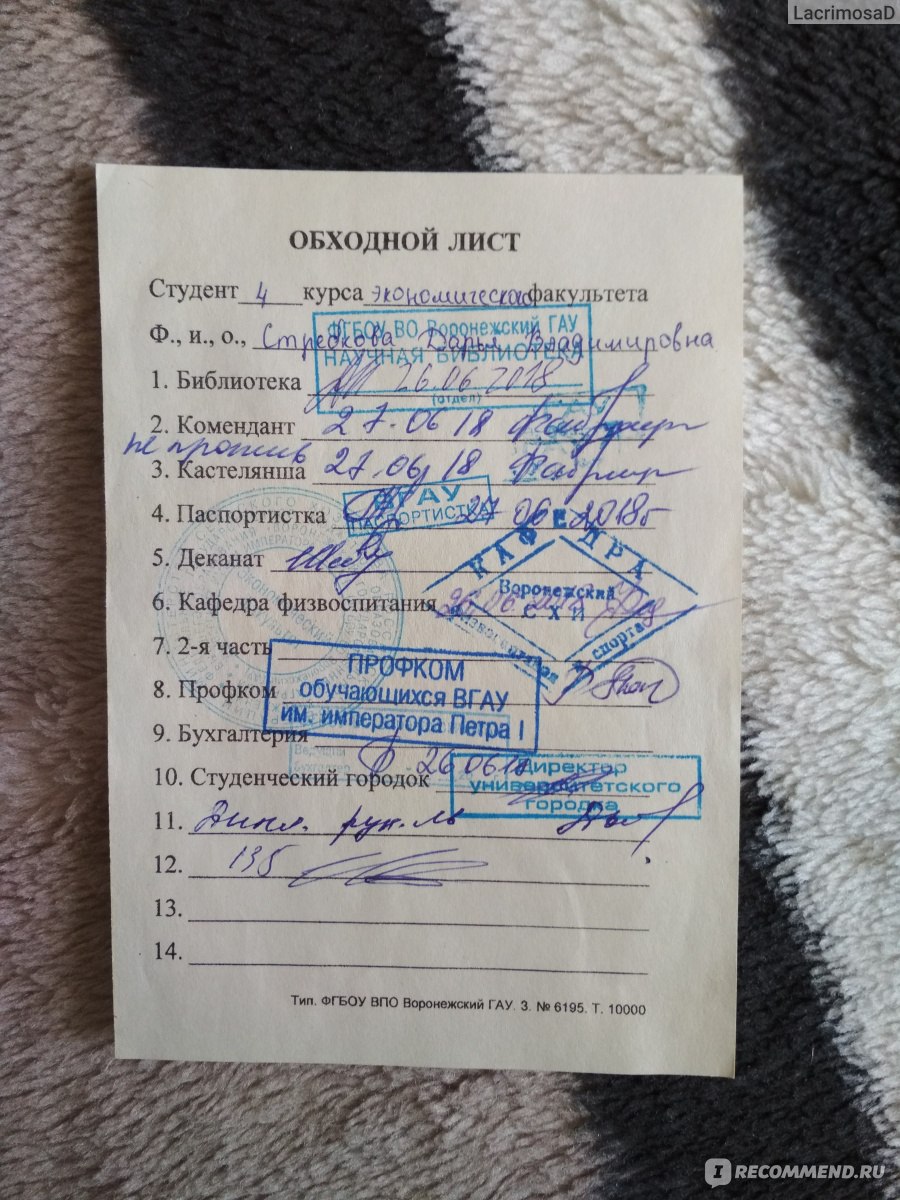 LacrimosaD
ОБХОДНОЙ ЛИСТ
Студент 4 курса экономического факультета
Ф., и., о., Стребкова Дарья Владимировна
ФГБОУ ВО Воронежский ГАУ
НАУЧНАЯ БИБЛИОТЕКА
1. Библиотека 26.06.2018
(отдел)
2. Комендант 27.06 18
не против
3. Кастелянша 27.06 18
ВГАУ
4. Паспортистка 27 06 2018г
ПАСПОРТИСТКА
КАФЕДРА
5. Деканат
Воронежский
6. Кафедра физвоспитания 26.06.2018
СХИ
спорта
7. 2-я часть
ПРОФКОМ
8. Профком
обучающихся ВГАУ
им. императора Петра I
9. Бухгалтерия 26 06 18
Ведущий
Бухгалтер
Директор
10. Студенческий городок
университетского
городка
11. Дипл. рук-ль
12. 135
13.
14.
Тип. ФГБОУ ВПО Воронежский ГАУ. З. № 6195. Т. 10000
IRECOMMEND.RU